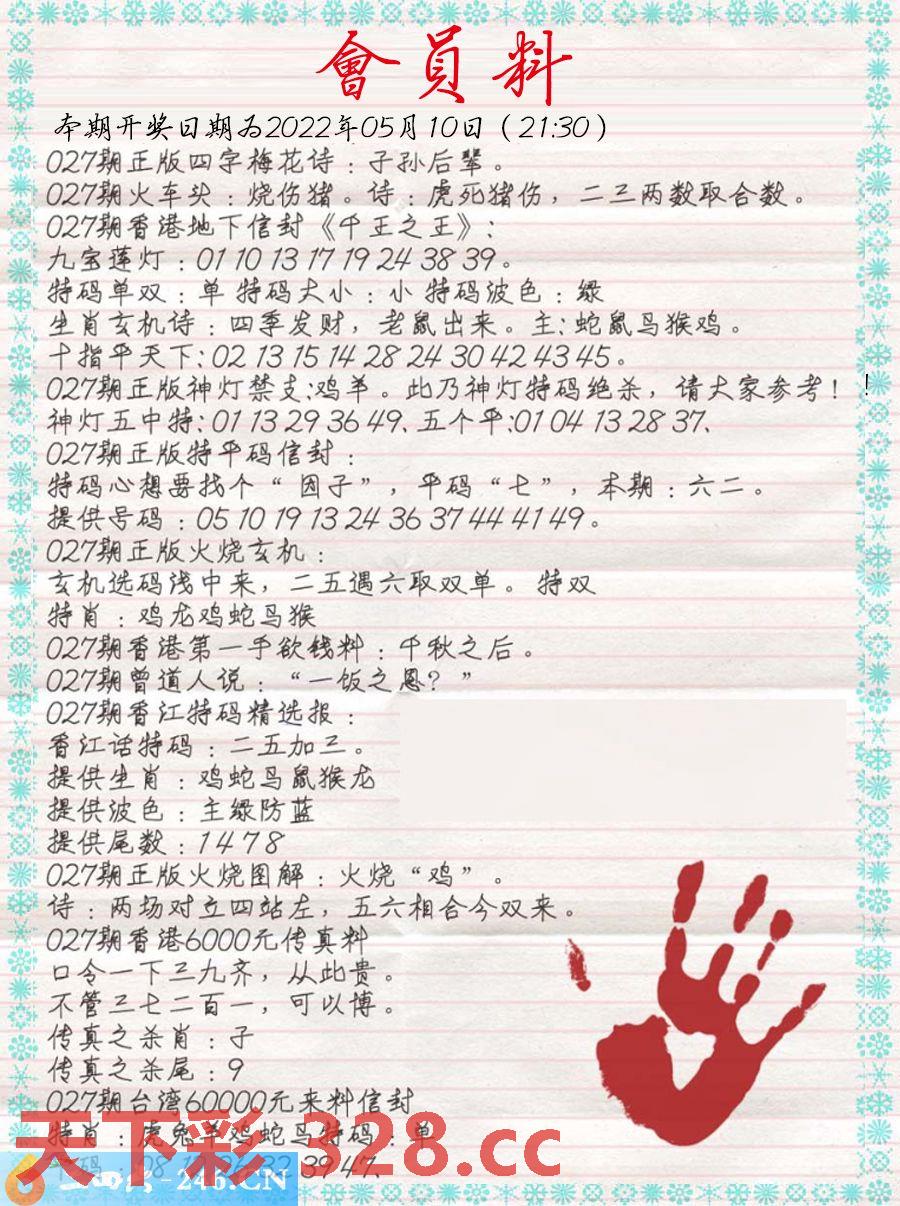 會員料
本期开奖日期为2022年05月10日（21:30）
027期正版四字梅花诗：子孙后辈。
027期火车头：烧伤猪。诗：虎死猪伤，二三两数取合数。
027期香港地下信封《千王之王》：
九宝莲灯：01 10 13 17 19 24 38 39。
特码单双：单 特码大小：小 特码波色：绿
生肖玄机诗：四季发财，老鼠出来。主：蛇鼠马猴鸡。
十指平天下：02 13 15 14 28 24 30 42 43 45。
027期正版神灯禁支：鸡羊。此乃神灯特码绝杀，请大家参考！！
神灯五中特：01 13 29 36 49、五个平：01 04 13 28 37、
027期正版特平码信封：
特码心想要找个“因子”，平码“七”，本期：六二。
提供号码：05 10 19 13 24 36 37 44 41 49。
027期正版火烧玄机：
玄机选码浅中来，二五遇六取双单。 特双
特肖：鸡龙鸡蛇马猴
027期香港第一手欲钱料：千秋之后。
027期曾道人说：“一饭之恩？”
027期香江特码精选报：
香江话特码：二五加三。
提供生肖：鸡蛇马鼠猴龙
提供波色：主绿防蓝
提供尾数：1 4 7 8
027期正版火烧图解：火烧“鸡”。
诗：两场对立四站左，五六相合今双来。
027期香港6000元传真料
口令一下三九齐，从此贵。
不管三七二百一，可以博。
传真之杀肖：子
传真之杀尾：9
027期台湾60000元来料信封
特肖：虎兔羊鸡蛇马特码：单
39 47、
天下彩 328.cc
-246.CN